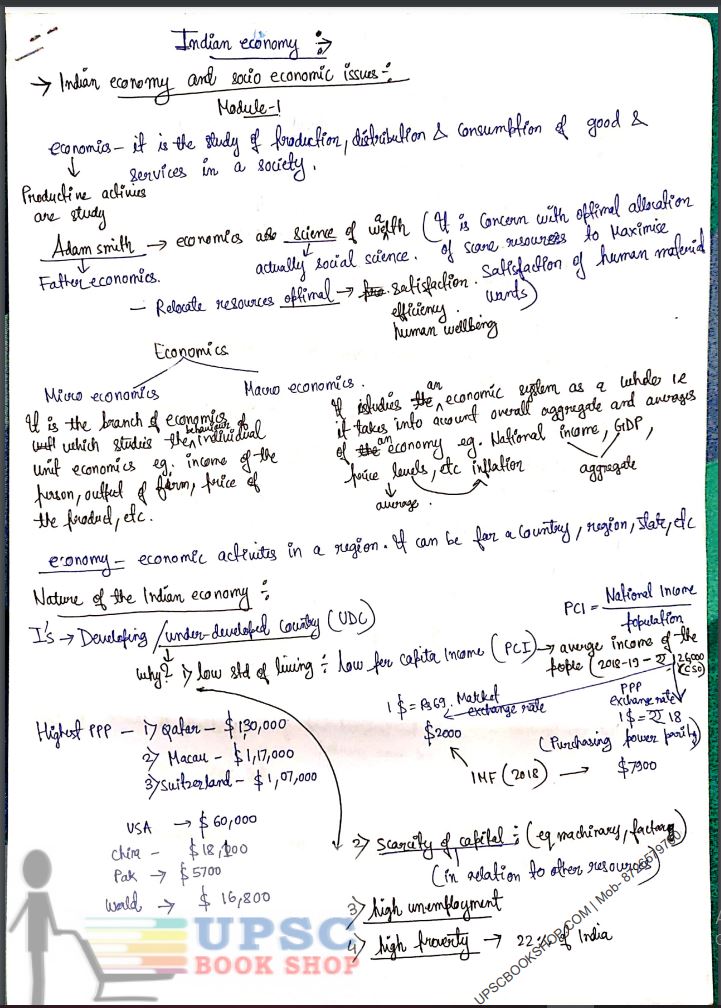 Indian economy :→
→ Indian economy and socio economic issues :-
Module-1
economics – it is the study of production, distribution & consumption of good &
services in a society.
Productive activies
are study
Adam smith → economics as science of wealth (It is concern with optimal allocation
of scare resources to Maximise
Satisfaction of human material
wants)
Father economics.
actually social science.
– Relocate resources optimal → satisfaction.
efficiency.
human wellbeing
Economics
Micro economics
Macro economics.
It is the branch of economics
which studies the behaviour of individual
unit economics eg. income of the
person, output of firm, price of
the product, etc.
It studies an economic system as a whole i.e
it takes into account overall aggregate and averages
of an economy eg. National income, GDP,
price levels, etc inflation
aggregate
average.
economy – economic activities in a region. It can be for a country, region, state, etc
Nature of the Indian economy :-
It's → Developing / under-developed country (UDC)
PCI = National Income
population
why? 1) low std of living :- low per capita Income (PCI) → averge income of the
people (2018-19 - ₹ 1,26,000
(CSO)
1 $ = Rs 69. Market
exchange rate
$2000
PPP
exchange rate
1 $ = ₹ 18
(Purchasing power parity)
IMF (2018) → $7900
Highest PPP – 1) Qatar – $ 1,30,000
2) Macau – $ 1,17,000
3) Suitzerland – $ 1,07,000
USA → $ 60,000
China – $ 18,100
Pak → $ 5700
World → $ 16,800
2) scarcity of capital :- (eg machinary, factory)
(in relation to other resources)
3) high unemployment
4) high proverty → 22% of India
UPSC
BOOK SHOP
UPSCBOOKSHOP.COM | Mob-